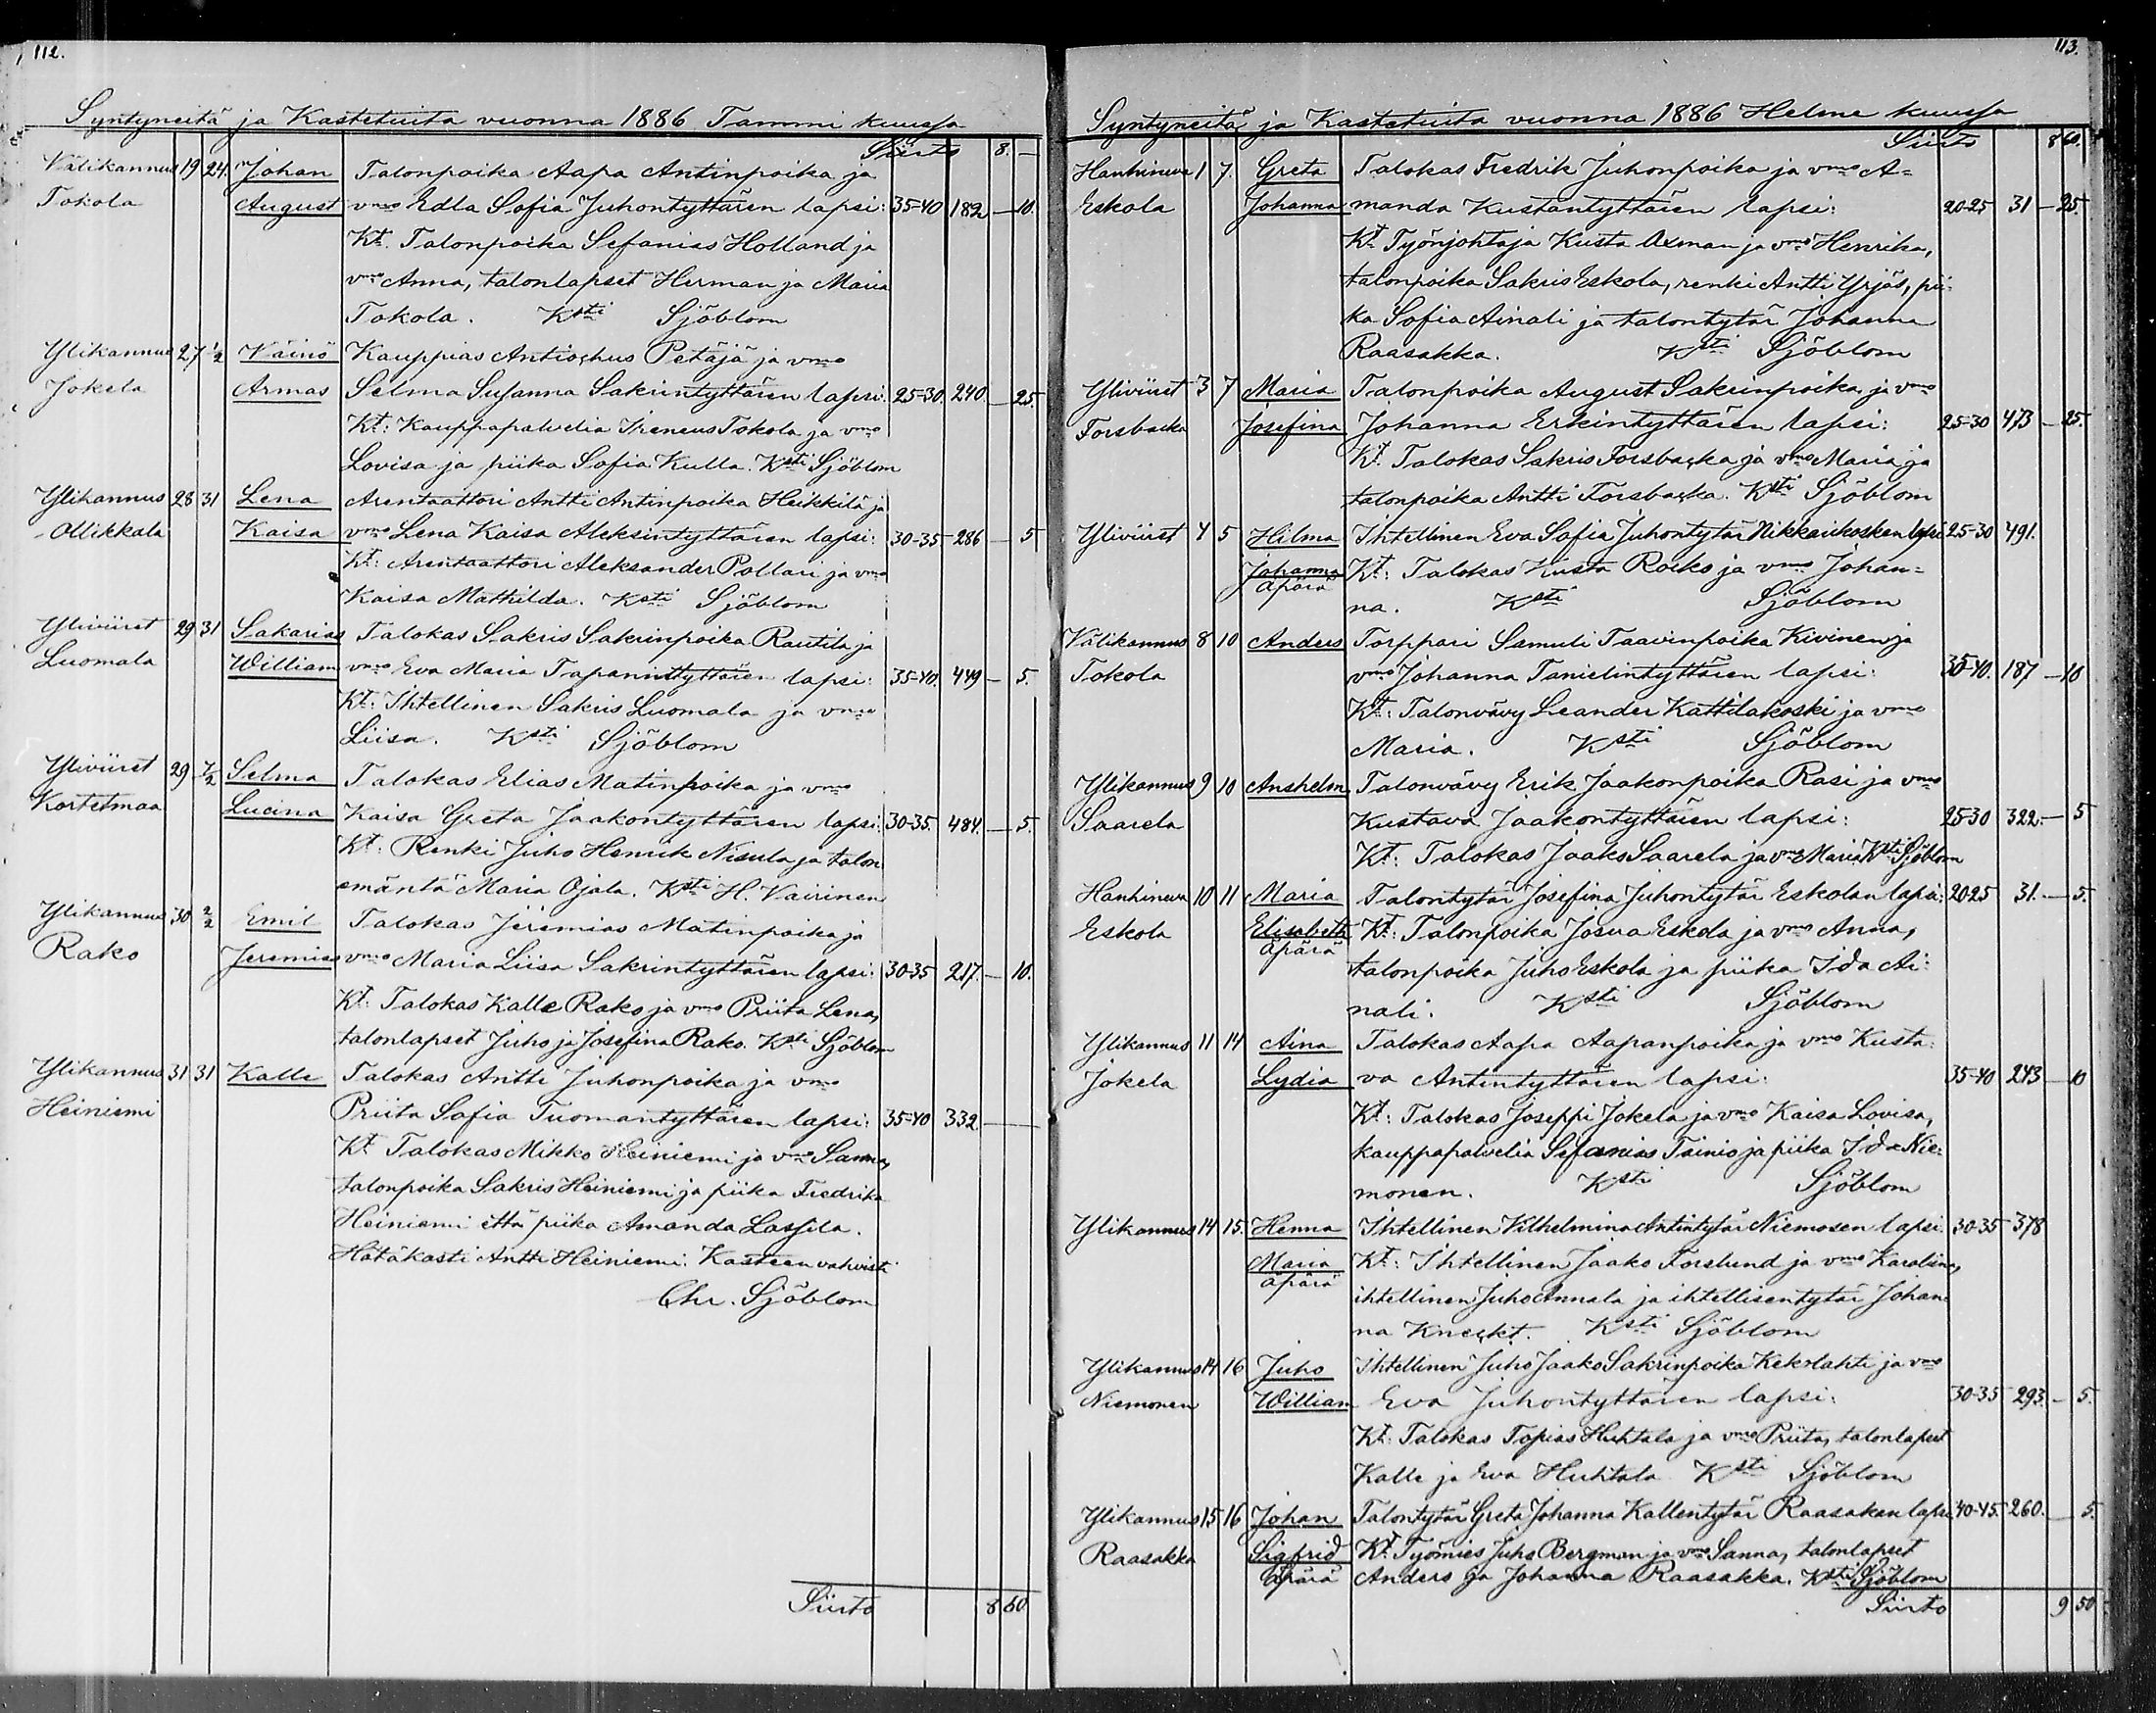 112.
Syntyneitä ja Kastetuita vuonna 1886 Tammi kuussa
Siirto 8. —
Välikannus 19 24. Johan Talonpoika Aapa Antinpoika ja
Tokola August vmo Edla Sofia Juhontyttären lapsi: 35-40 182 — 10.
Kt. Talonpoika Sefanias Holland ja
vmo Anna, talonlapset Herman ja Maria
Tokola. Ksti Sjöblom
Ylikannus 27 1/2 Väinö Kauppias Antiochus Petäjä ja vmo
Jokela Armas Selma Susanna Sakrintyttären lapsi. 25-30. 240. — 25.
Kt: Kauppapalvelia Ireneus Tokola ja vmo
Lovisa ja piika Sofia Kulla. Ksti Sjöblom
Ylikannus 28 31 Lena Arentaattori Antti Antinpoika Heikkilä ja
Ollikkala Kaisa vmo Lena Kaisa Aleksintyttären lapsi: 30-35 286 — 5
Kt: Arentaattori Aleksander Pollari ja vmo
Kaisa Mathilda. Ksti Sjöblom
Yliviiret 29 31 Sakarias Talokas Sakris Sakrinpoika Rautila ja
Luomala William vmo Eva Maria Tapanintyttären lapsi: 35-40. 449 — 5.
Kt: Ihtellinen Sakris Luomala ja vmo
Liisa. Ksti Sjöblom
Yliviiret 29 7/2 Selma Talokas Elias Matinpoika ja vmo
Kortetmaa Lucina Kaisa Greta Jaakontyttären lapsi: 30-35. 484. — 5.
Kt: Renki Juho Henrik Nisula ja talon
emäntä Maria Ojala. Ksti H. Vairinen
Ylikannus 30 2/2 Emil Talokas Jeremias Matinpoika ja
Rako Jeremias vmo Maria Liisa Sakrintyttären lapsi: 30-35 217. — 10.
Kt: Talokas Kalle Rako ja vmo Priita Lena,
talonlapset Juho ja Josefina Rako. Ksti Sjöblom
Ylikannus 31 31 Kalle Talokas Antti Juhonpoika ja vmo
Heiniemi Priita Sofia Tuomantyttären lapsi: 35-40 332 —
Kt Talokas Mikko Heiniemi ja vmo Sanna,
talonpoika Sakris Heiniemi ja piika Fredrika
Heiniemi että piika Amanda Lassila.
Hätäkasti Antti Heiniemi. Kasteen vahvisti
Chr. Sjöblom
Siirto 8 60
113.
Syntyneitä ja Kastetuita vuonna 1886 Helme kuussa
Siirto 8 60.
Hanhineva 1 7. Greta Talokas Fredrik Juhonpoika ja vmo A-
Eskola Johanna manda Kustantyttären lapsi: 20-25 31 — 25.
Kt Työnjohtaja Kusta Axman ja vmo Henrika,
talonpoika Sakris Eskola, renki Antti Yrjäs, pii-
ka Sofia Ainali ja talontytär Johanna
Raasakka. Ksti Sjöblom
Yliviiret 3 7 Maria Talonpoika August Sakrinpoika ja vmo
Forsbacka Josefina Johanna Erkintyttären lapsi: 25-30 473 — 25.
Kt. Talokas Sakris Forsbacka ja vmo Maria ja
talonpoika Antti Forsbacka. Ksti Sjöblom
Yliviiret 4 5 Hilma Ihtellinen Eva Sofia Juhontytär Nikkarikosken lapsi 25-30 491.
Johanna Kt: Talokas Kusta Roiko ja vmo Johan-
äpärä na. Ksti Sjöblom
Välikannus 8 10 Anders Torppari Samuli Taavinpoika Kivinen ja
Tokola vmo Johanna Tanielintyttären lapsi: 35-40. 187 — 10
Kt: Talonvävy Leander Kattilakoski ja vmo
Maria. Ksti Sjöblom
Ylikannus 9 10 Anshelm Talonvävy Erik Jaakonpoika Rasi ja vmo
Saarela Kustava Jaakontyttären lapsi: 25-30 322. — 5
Kt: Talokas Jaako Saarela ja vmo Maria Ksti Sjöblom
Hanhineva 10 11 Maria Talontytär Josefina Juhontytär Eskolan lapsi: 20-25 31. — 5.
Eskola Elisabeth Kt: Talonpoika Josua Eskola ja vmo Anna,
äpärä talonpoika Juho Eskola ja piika Ida Ai-
nali. Ksti Sjöblom
Ylikannus 11 14 Aina Talokas Aapa Aapanpoika ja vmo Kusta-
Jokela Lydia va Antintyttären lapsi: 35-40 243 — 10
Kt: Talokas Joseppi Jokela ja vmo Kaisa Lovisa,
kauppapalvelia Sefanias Tainio ja piika Ida Nie-
monen. Ksti Sjöblom
Ylikannus 14 15. Henna Ihtellinen Vilhelmina Antintytär Niemosen lapsi 30-35 378
Maria Kt: Ihtellinen Jaako Forslund ja vmo Karolina,
äpärä ihtellinen Juho Annala ja ihtellisentytär Johan-
na Kneckt. Ksti Sjöblom
Ylikannus 14 16 Juho Ihtellinen Juho Jaako Sakrinpoika Kekolahti ja vmo
Niemonen William Eva Juhontyttären lapsi: 30-35 293. — 5.
Kt: Talokas Topias Huhtala ja vmo Priita, talonlapset
Kalle ja Eva Huhtala Ksti Sjöblom
Ylikannus 15 16 Johan Talontytär Greta Johanna Kallentytär Raasakan lapsi 40-45. 260. — 5.
Raasakka Sigfrid Kt. Työmies Juho Bergman ja vmo Sanna, talonlapset
äpärä Anders ja Johanna Raasakka. Ksti Sjöblom
Siirto 9 50